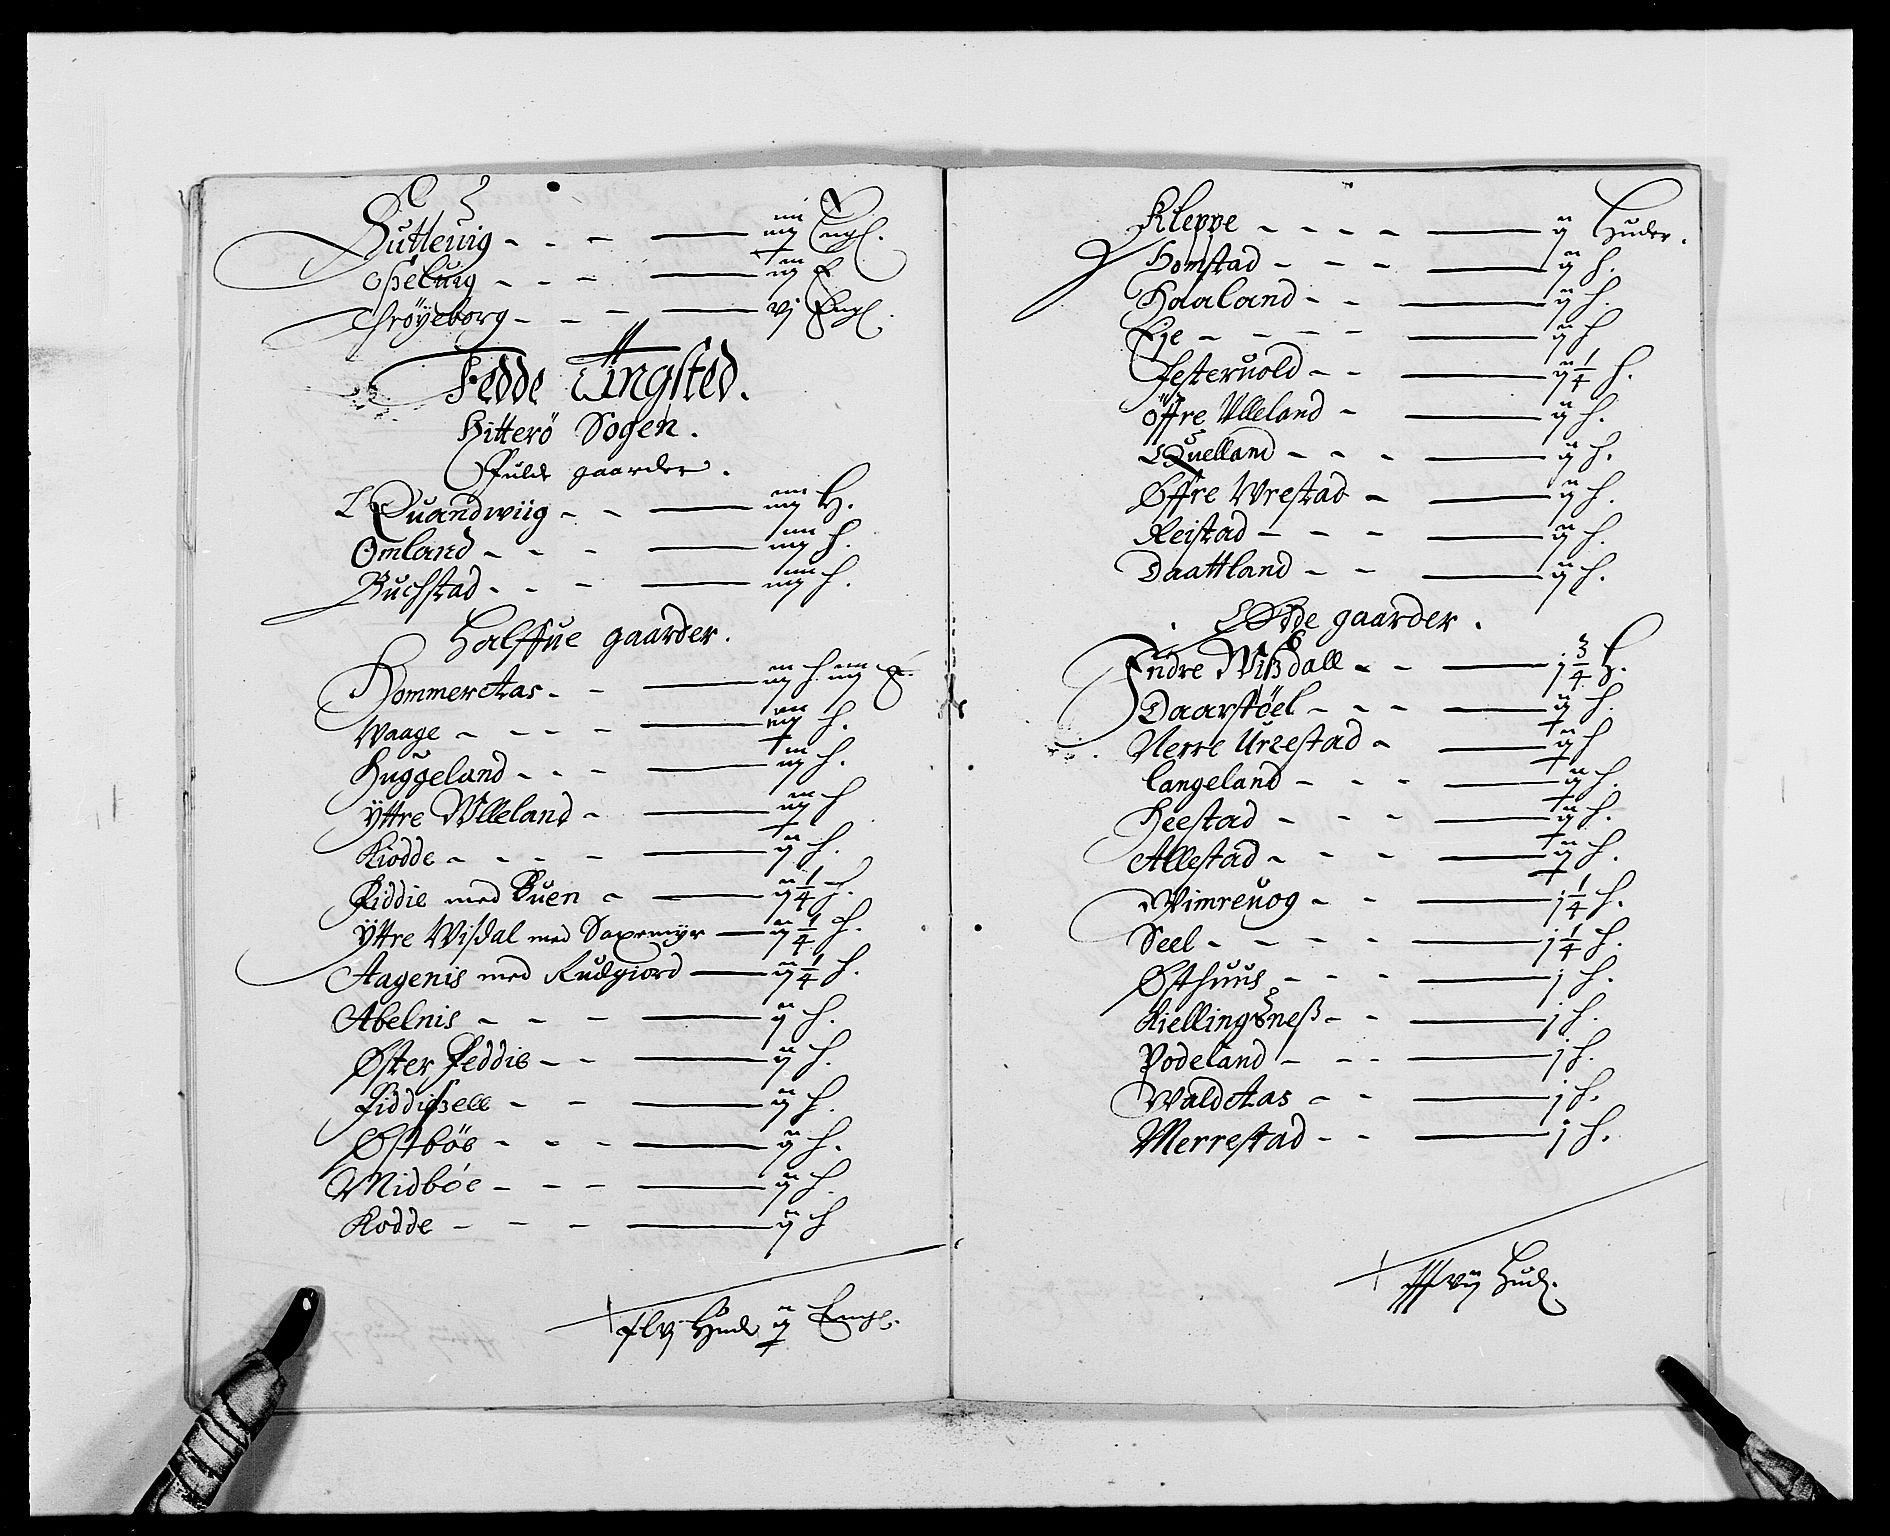 Gutleuig - - - iiij Engl.
Øieluig - - - iij E
Frøÿeborg - - - vj Engl.
Fedde Tingsted.
Hitterö Sogen.
Fulde gaarder.
Quandwiig - - iiij H.
Omland - - - iiij h.
Buchstad - - - iiij h.
Halffue gaarder.
HommerAas - - iij h. iij E.
Waage - - - - iij h.
Huggeland - - - iij h.
Yttre Ulleland - iij h
Kiodde - - - - ij h.
Fiddie med Buen - ij 1/4 h.
Yttre Wisdal med Saxemyr ij 1/4 h.
Aagenis med Rudgiord ij 1/4 h.
Abelnis - - - ij h.
Øster Feddie - - ij h.
Fiddißell - - ij h.
Østböe - - - ij h.
Midböe - - - ij h.
Kodde - - - ij h
flvj Hude ij Engl.
Kleppe - - - - ij Huder.
Homstad - - - ij h.
Haaland - - ij h.
Eje - - - - ij h
Jesteruold - - ij 1/4 h.
Öffre Ulleland - ij h.
Quelland - - - ij h.
Øffre Wrestad - ij h.
Reistad - - - ij h.
Daattland - - ij h.
Øde gaarder.
Indre Wißdall - - j 3/4 H.
Daarstöel - - - ij h.
Nerre Urzestad - ij h
Langeland - - - ij h.
Heestad - - - ij h.
Allestad - - - ij h.
Wimreuog - - j 1/4 h.
Seel - - - - j 1/4 h.
Østhuus - - - j h.
Kiellingßneß - - j h.
Podeland - - - j h.
WaldAas - - j h.
Merrestad - - j h.
Hud.